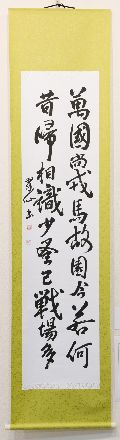 萬國尚戎馬故園今若何
昔歸相識少蚤已戰場多